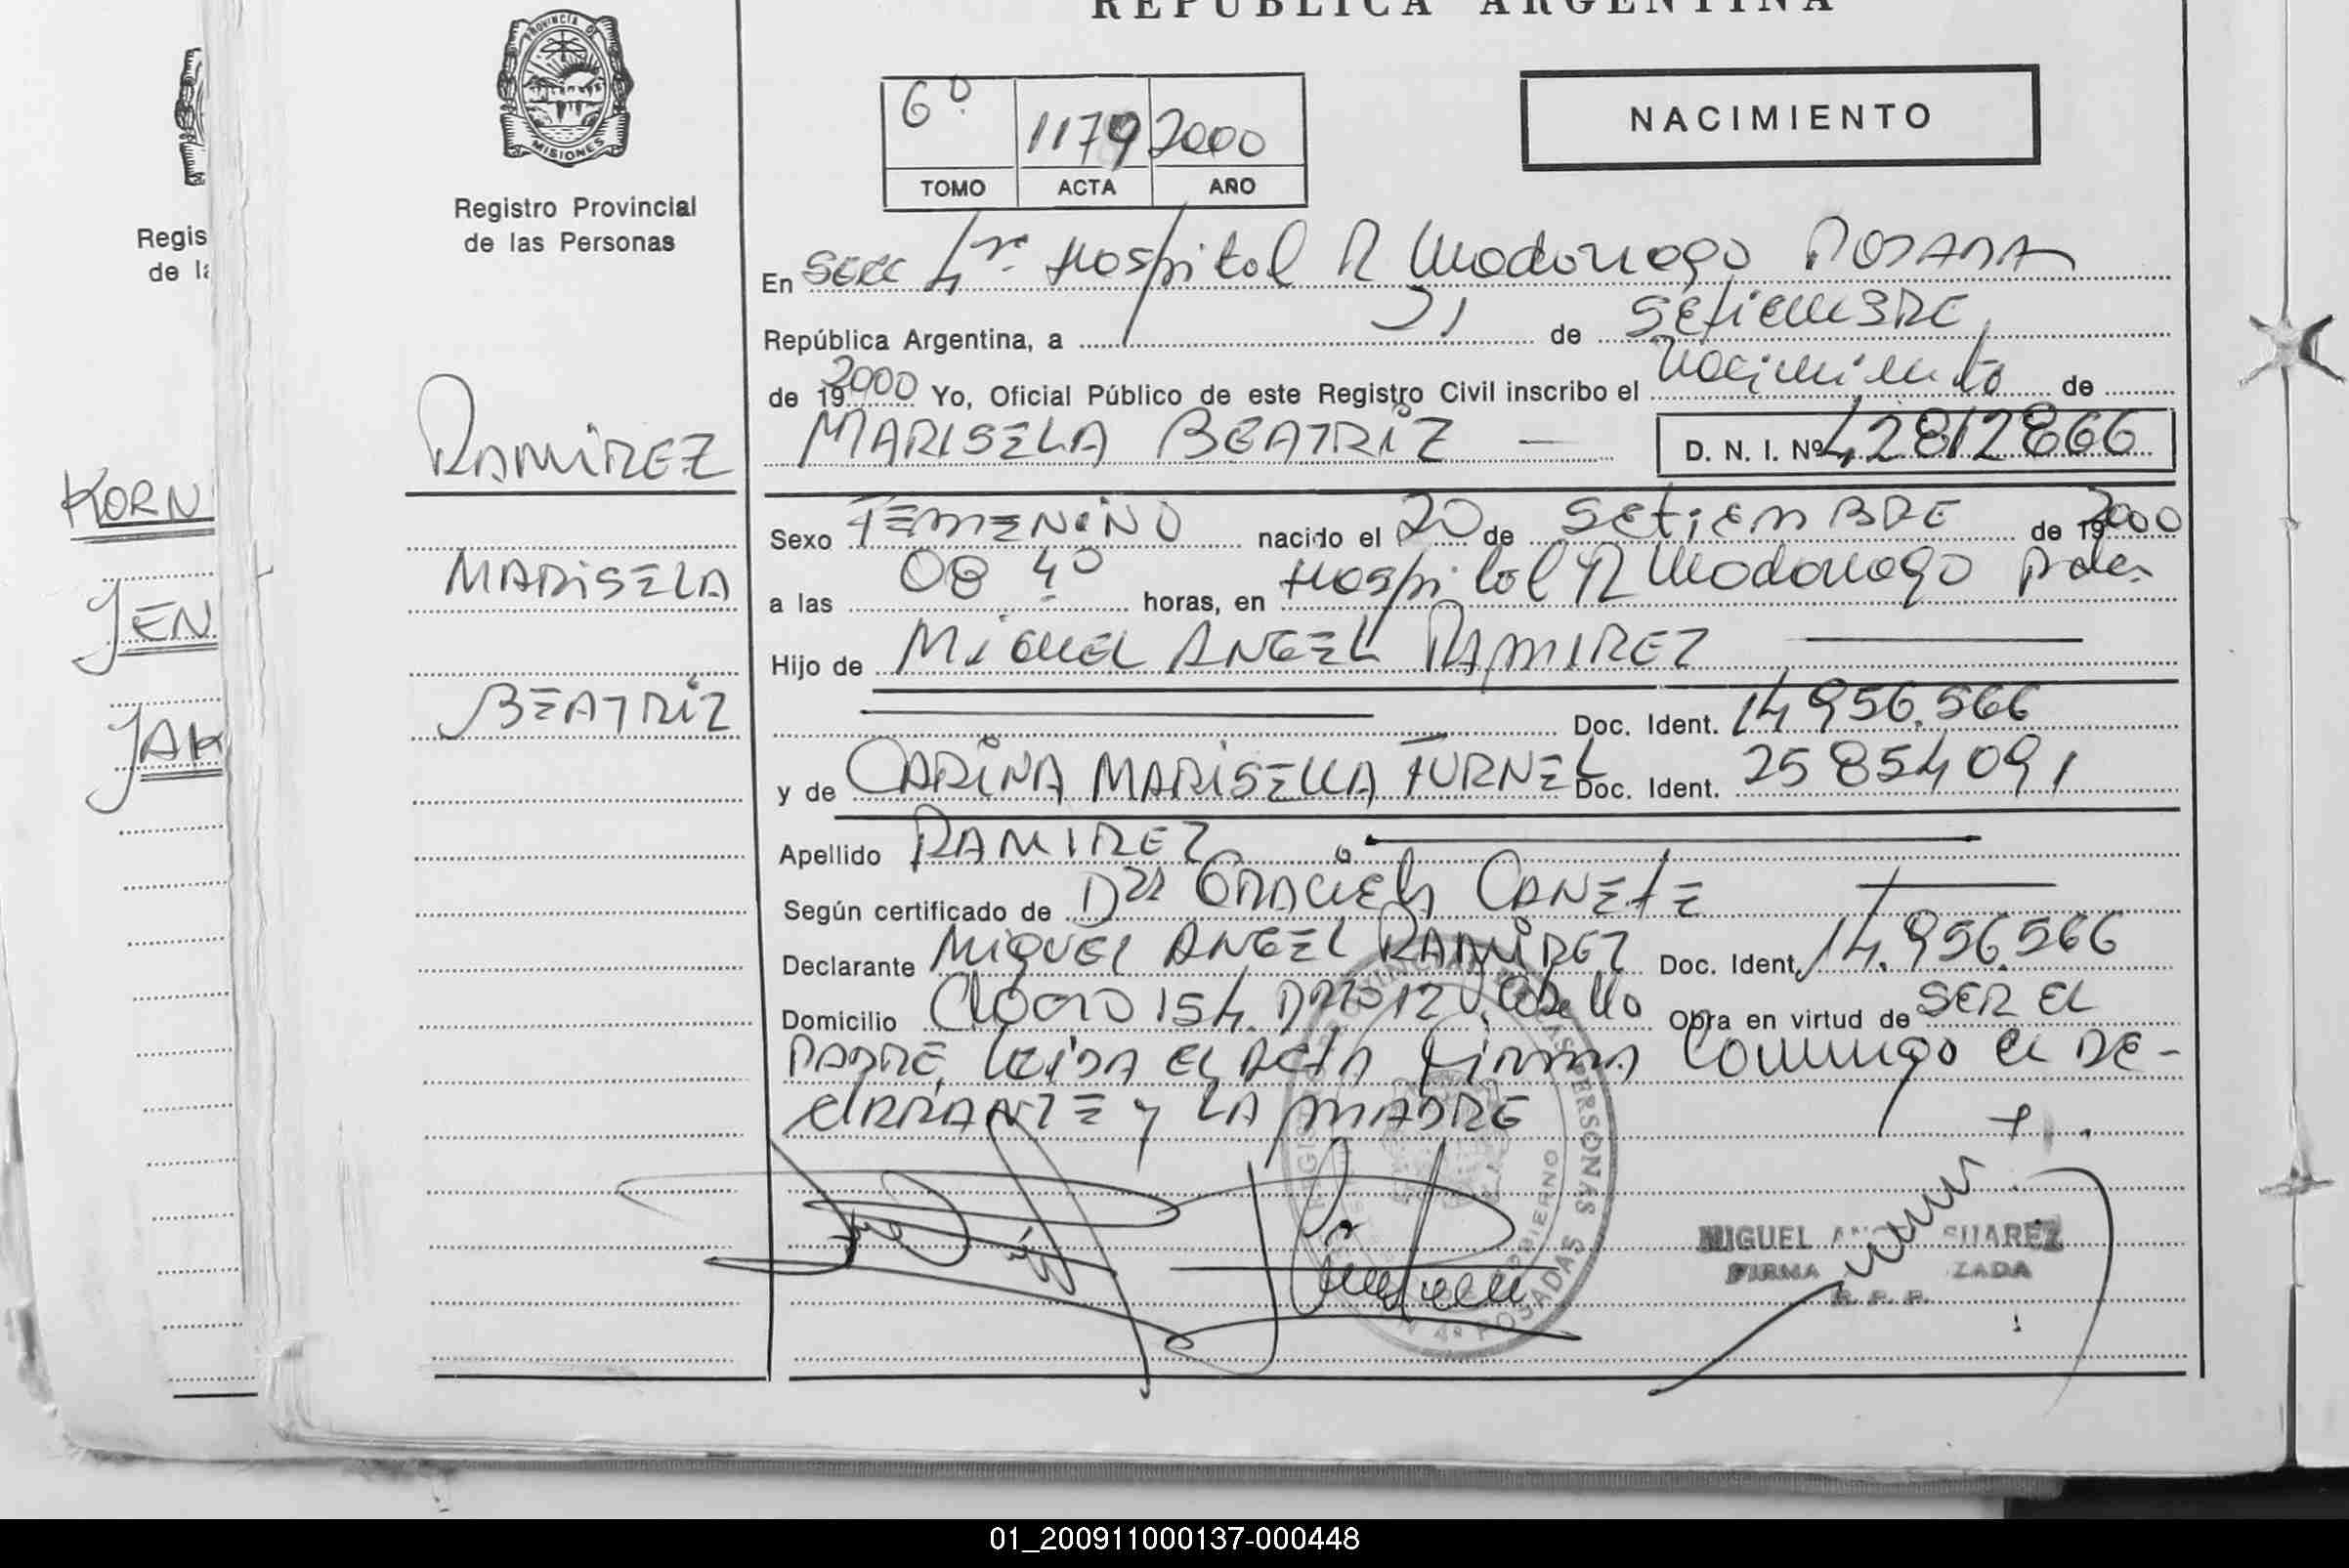 REPUBLICA ARGENTINA
PROVINCIA DE
MISIONES
Registro Provincial
de las Personas
Regis
de la
6º 1179 2000
TOMO ACTA AÑO
NACIMIENTO
En Secc 4ª Hospital R Madariaga POSADAS
República Argentina, a 21 de SETIEMBRE
de 19 2000 Yo, Oficial Público de este Registro Civil inscribo el Nacimiento de
MARISELA BEATRIZ — D. N. I. Nº 42812866
RAMIREZ
MARISELA
BEATRIZ
KORN
JEN
JAK
Sexo FEMENINO nacido el 20 de SETIEMBRE de 19 2000
a las 08 40 horas, en Hospital R Madariaga Pdas
Hijo de MIGUEL ANGEL RAMIREZ
Doc. Ident. 14.956.566
y de CARINA MARISELLA FURNEL Doc. Ident. 25854091
Apellido RAMIREZ
Según certificado de Dra GRACIELA CANETE
Declarante MIGUEL ANGEL RAMIREZ Doc. Ident. 14.956.566
Domicilio 154 12 Obra en virtud de SER EL
PADRE, LEIDA EL ACTA FIRMA Conmigo el DE-
CLARANTE y LA MADRE
MIGUEL SUAREZ
FIRMA ZADA
R. P. P.
PERSONAS
GOBIERNO
4ª POSADAS
01_200911000137-000448